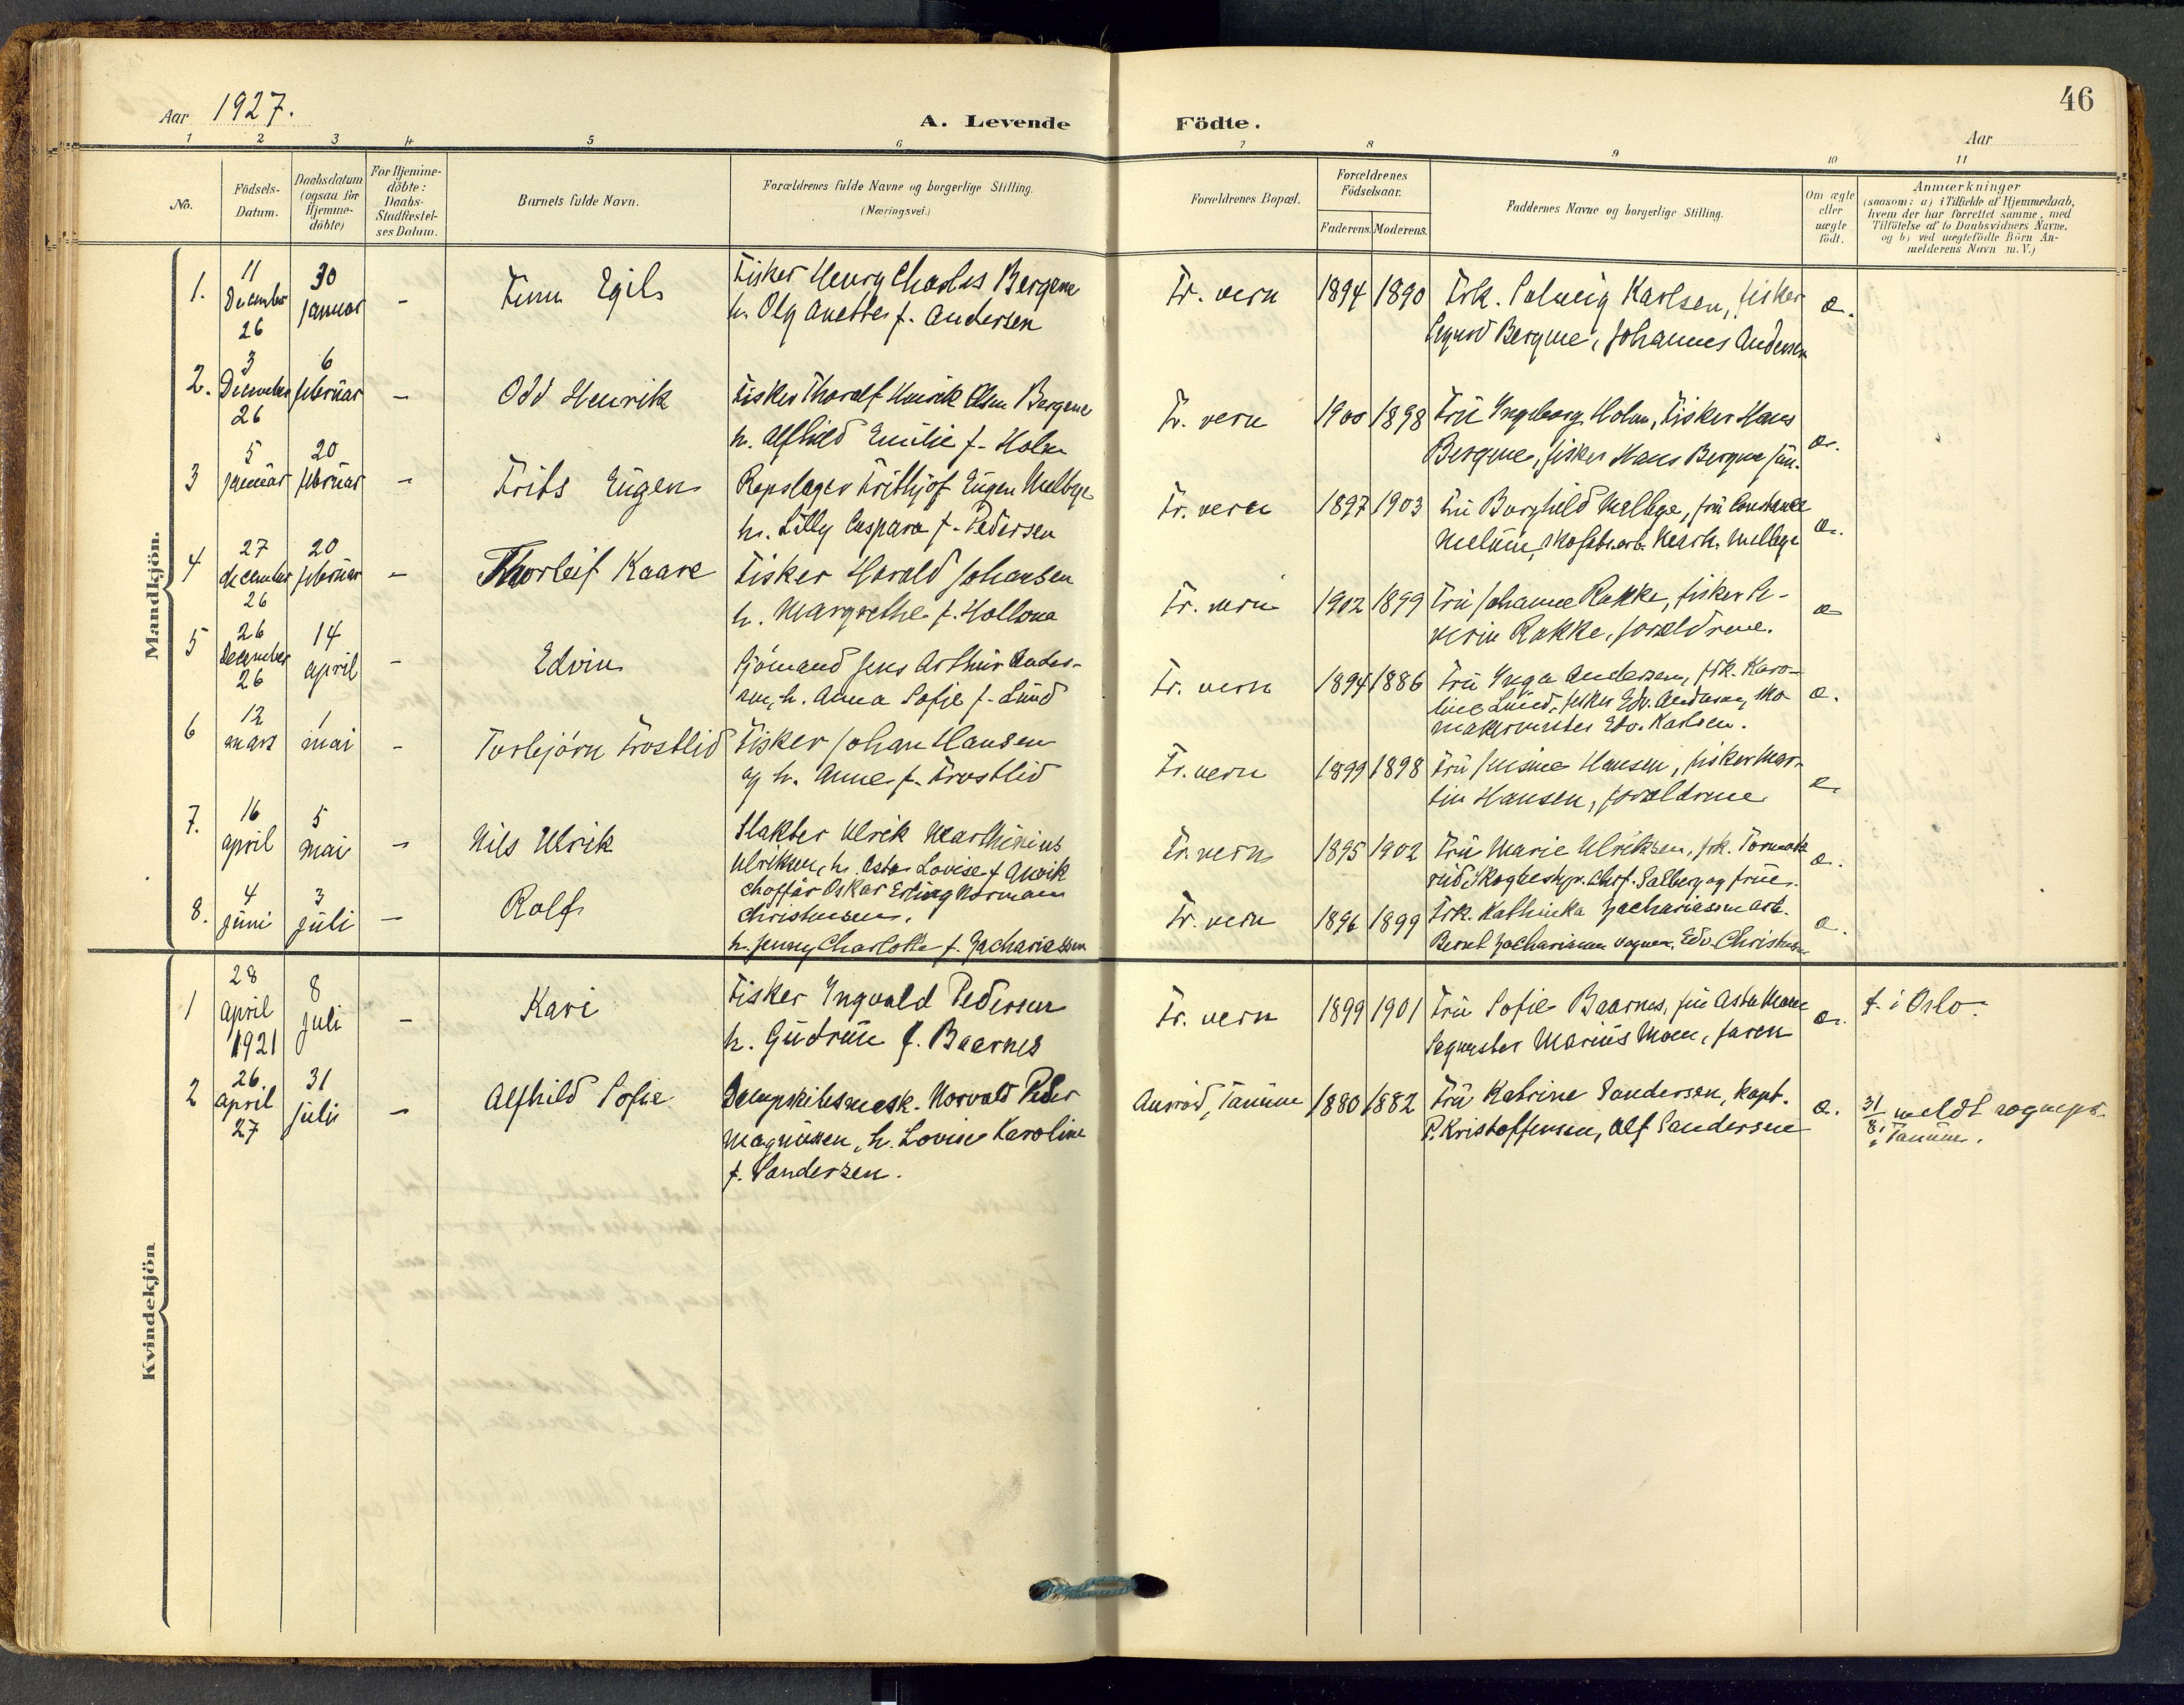 46
Aar 1927.
A. Levende Födte.
Aar
1 2 3 4 5 6 7 8 9 10 11
No.
Födsels-
Datum.
Daabsdatum
(ogsaa for
Hjemme-
döbte)
For Hjemme-
döbte:
Daabs-
Stadfæstel-
ses Datum.
Barnets fulde Navn.
Forældrenes fulde Navne og borgerlige Stilling.
(Næringsvei.)
Forældrenes Bopæl.
Forældrenes
Födselsaar.
Faderens. Moderens.
Faddernes Navne og borgerlige Stilling.
Om ægte
eller
uægte
födt.
Anmærkninger
(saasom: a) i Tilfælde af Hjemmedaab,
hvem der har forrettet samme, med
Tilföielse af to Daabsvidners Navne,
og b) ved uægtefödte Börn An-
melderens Navn m. V.)
Mandkjön.
1.
11
December
26
30
januar
-
Finn Egil
Fisker Henry Charles Bergene
h. Olg Anette f. Andersen
Fr. vern
1894 1890
Frk. Solveig Karlsen, fisker
Sigurd Bergene, Johannes Andersen
æ.
2.
3
December
26
6
februar
-
Odd Henrik
Fisker Thoralf Henrik Olsen Bergene
h. Alfhild Emilie f. Holm
Fr. vern
1900 1898
Frü Ingeborg Holm, Fisker Hans
Bergene, fisker Hans Bergene jün.
æ.
3
5
januar
20
februar
-
Frits Eügen
Repslager Frithjof Eügen Melbye
h. Lilly Caspara f. Pedersen
Fr. vern
1897 1903
Frü Borghild Melbye, frü Constance
Melüm, skofabr.arb. Marth. Melbye
æ.
4
27
december
26
20
februar
-
Thorleif Kaare
Fisker Harald Johansen
h. Margrethe f. Hollona
Fr. vern
1902 1899
Frü Johanne Rakke, fisker
Rakke, forældrene.
æ
5
26
December
26
14
april
-
Edvin
Sjömand Jens Arthür Ander-
sen, h. Anna Sofie f. Lünd
Fr. vern
1894 1886
Frü Ynga Andersen, frk. Karo-
line Lünd, fisker Edv. Andersen, sko-
makermester Edv. Karlsen.
æ.
6
12
mars
1
mai
-
Torbjörn Frostlid
Fisker Johan Hansen
og h. Anne f. Frostlid
Fr. vern
1899 1898
Frü Hansen, fisker Mar-
tin Hansen, forældrene
æ.
7.
16
april
5
mai
-
Nils Ulrik
Slakter Ulrik Marthinius
Ulriksen, h. Asta Lovise f. Anvik
Fr. vern
1895 1902
Frü Marie Ulriksen, frk.
Chrf. Salberg og früe.
æ.
8.
4
jüni
3
jüli
-
Rolf
Choffür Oskar Erling Normann
Christensen,
h. Jenny Charlotte f. Zachariassen
Fr. vern
1896 1899
Frk. Kathinka Zachariassen arb.
Bernt Zachariassen Edv. Christensen
æ.
Kvindekjön
1
28
april
1921
8
juli
-
Kari
Fisker Yngvald Pedersen
h. Güdrün f. Baarnes
Fr. vern
1899 1901
Frü Sofie Baarnes, frü Asta Moen
Sagmester Marius Moen, faren
æ.
f. i Oslo.
2
26.
april
27
31
juli
-
Alfhild Sofie
Dampskibsmask. Norvald Peder
Magnüssen, h. Lovise Karoline
f. Sandersen.
Aüsröd, Tanüm
1880 1882
Frü Katrine Sandersen, kapt.
P. Kristoffersen, Alf Sandersen
æ.
31/8 meldt sognepr.
i Tanüm.